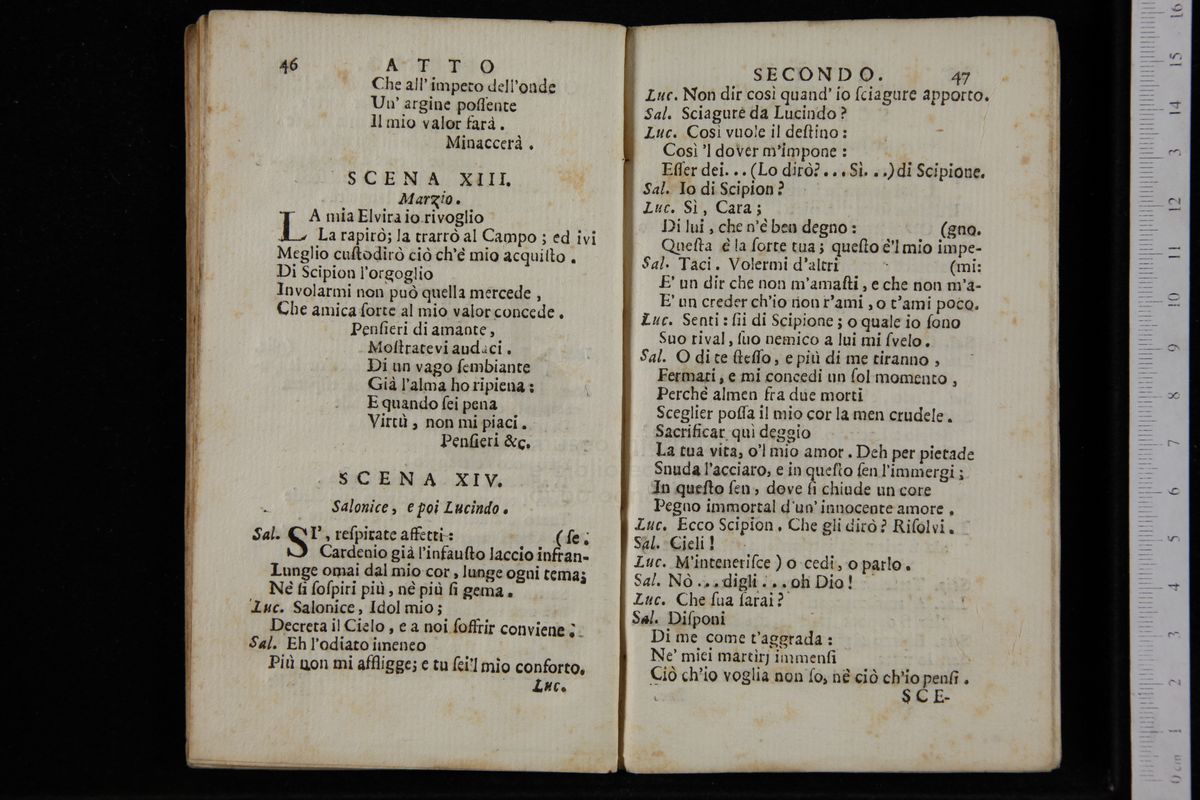 46 ATTO
Che all' impeto dell'onde
Un' argine poſſente
Il mio valor farà.
Minaccerà.
SCENA XIII.
Marzio.
LA mia Elvira io rivoglio
La rapirò; la trarrò al Campo; ed ivi
Meglio cuſtodirò ciò ch'è mio acquiſto.
Di Scipion l'orgoglio
Involarmi non può quella mercede,
Che amica ſorte al mio valor concede.
Penſieri di amante,
Moſtratevi audaci.
Di un vago ſembiante
Già l'alma ho ripiena:
E quando ſei pena
Virtù, non mi piaci.
Penſieri &c.
SCENA XIV.
Salonice, e poi Lucindo.
Sal. SI', reſpirate affetti: (ſe.
Cardenio già l'infauſto laccio infran-
Lunge omai dal mio cor, lunge ogni tema;
Nè ſi ſoſpiri più, nè più ſi gema.
Luc. Salonice, Idol mio;
Decreta il Cielo, e a noi ſoffrir conviene.
Sal. Eh l'odiato imeneo
Più non mi affligge; e tu ſei'l mio conforto.
Luc.
SECONDO. 47
Luc. Non dir così quand' io ſciagure apporto.
Sal. Sciagure da Lucindo?
Luc. Così vuole il deſtino:
Così 'l dover m'impone:
Eſſer dei... (Lo dirò?... Sì...) di Scipione.
Sal. Io di Scipion?
Luc. Sì, Cara;
Di lui, che n'è ben degno: (gno.
Queſta è la ſorte tua; queſto è'l mio impe-
Sal. Taci. Volermi d'altri (mi:
E' un dir che non m'amaſti, e che non m'a-
E' un creder ch'io non t'ami, o t'ami poco.
Luc. Senti: ſii di Scipione; o quale io ſono
Suo rival, ſuo nemico a lui mi ſvelo.
Sal. O di te ſteſſo, e più di me tiranno,
Fermati, e mi concedi un ſol momento,
Perchè almen fra due morti
Sceglier poſſa il mio cor la men crudele.
Sacrificar quì deggio
La tua vita, o'l mio amor. Deh per pietade
Snuda l'acciaro, e in queſto ſen l'immergi;
In queſto ſen, dove ſi chiude un core
Pegno immortal d'un' innocente amore.
Luc. Ecco Scipion. Che gli dirò? Riſolvi.
Sal. Cieli!
Luc. M'inteneriſce) o cedi, o parlo.
Sal. Nò... digli... oh Dio!
Luc. Che ſua ſarai?
Sal. Diſponi
Di me come t'aggrada:
Ne' miei martìrj immenſi
Ciò ch'io voglia non ſo, nè ciò ch'io penſi.
SCE-
0 cm 1 2 3 4 5 6 7 8 9 10 11 12 3 14 15 16